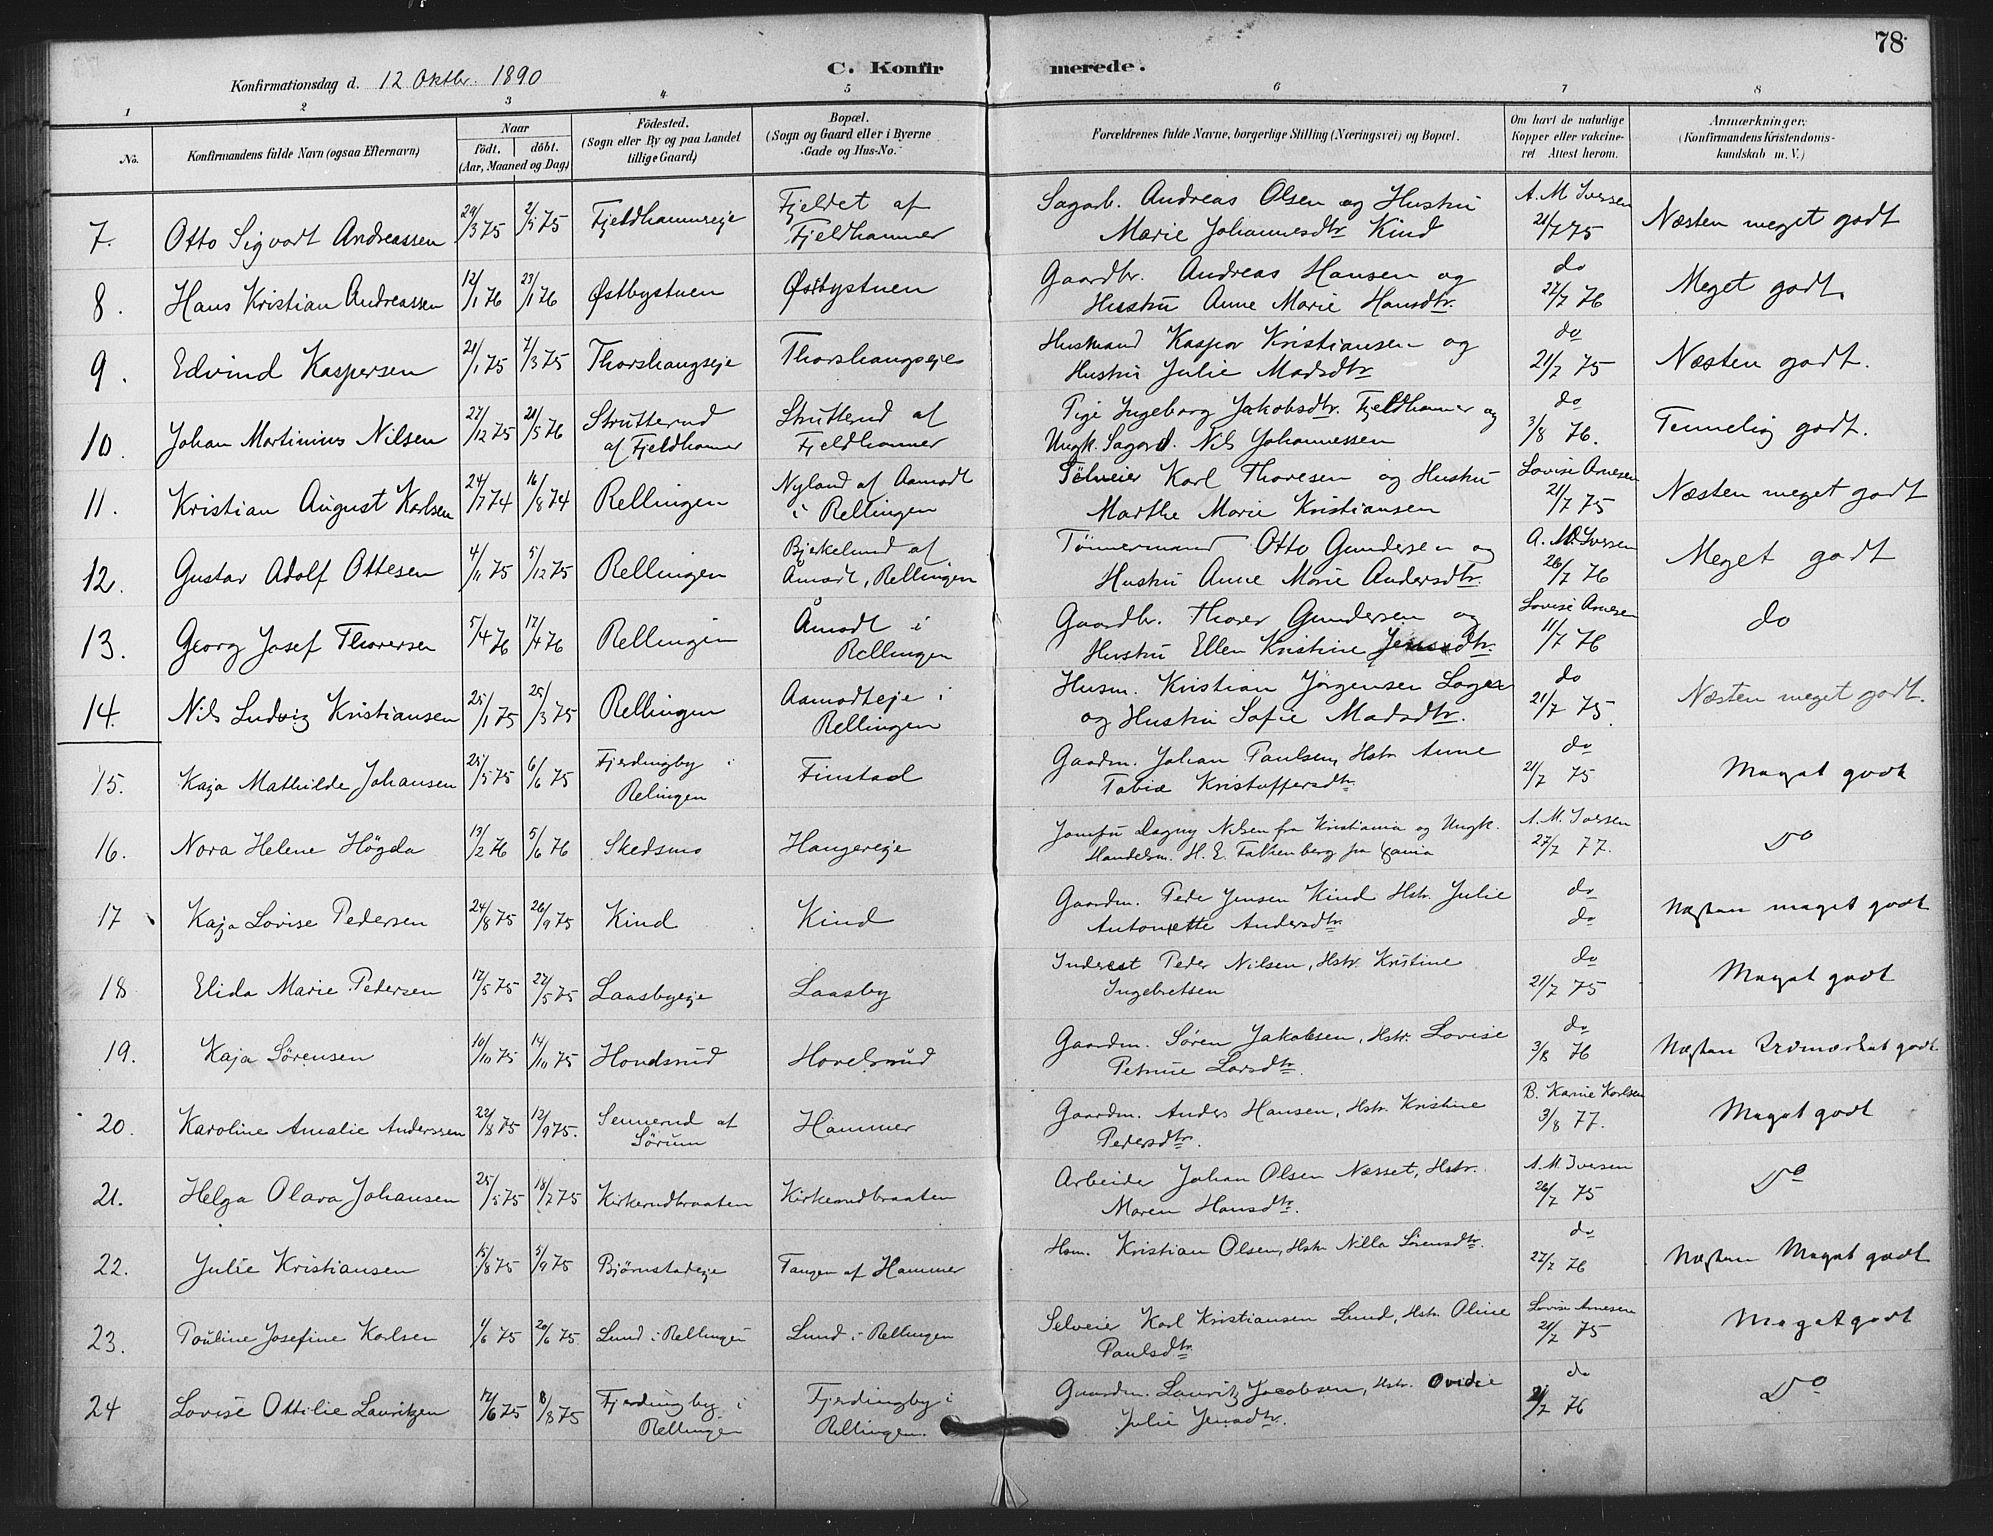 78
Konfirmationsdag d. 12 Oktbr. 1890
C. Konfirmerede.
1 2 3 4 5 6 7 8
No. Konfirmandens fulde Navn (ogsaa Efternavn) Naar födt. döbt. (Aar, Maaned og Dag) Födested. (Sogn eller By og paa Landet tillige Gaard) Bopæl. (Sogn og Gaard eller i Byerne Gade og Hus-No. Forældrenes fulde Navne, borgerlige Stilling (Næringsvei) og Bopæl. Om havt de naturlige Kopper eller vaccineret Attest herom. Anmærkninger, (Konfirmandens Kristendomskundskab m. V.)
7. Otto Sigvart Andreassen 29/3 75 2/5 75 Fjeldhammereje Fjeldet af Fjeldhammer Sagarb. Andreas Olsen og Hustru Marie Johannesdtr Kind A. M Iversen 21/7 75 Næsten meget godt
8. Hans Kristian Andreassen 12/1 76 23/1 76 Østbystuen Østbystuen Gaardbr. Andreas Hansen og Hustru Anne Marie Hansdtr. do 27/7 76 Meget godt.
9. Edvind Kaspersen 21/1 75 7/3 75 Thorshaugseje Thorshaugseje Husmand Kaspar Kristiansen og Hustru Julie Madsdtr do 21/7 75 Næsten godt.
10. Johan Martinius Nilsen 27/12 75 21/5 76 Strutterud af Fjeldhamer Strutterud af Fjeldhammer Pige Ingeborg Jakobsdtr. Fjeldhamer og Ungk. Sagard. Nils Johannessen do 3/8 76. Temmelig godt.
11. Kristian August Karlsen 24/7 74 16/8 74 Rellingen Nyland af Aamodt i Rellingen Selveier Karl Thoresen og Hustru Marthe Marie Kristiansen Lovise Arnesen 21/7 75 Næsten meget godt
12. Gustav Adolf Ottesen 4/11 75 5/12 75 Rellingen Bjerkelund af Åmodt, Rellingen Tømmermand Otto Gundersen og Hustru Anne Marie Andersdtr. A. M. Iversen 26/7 76 Meget godt
13. Georg Josef Thoresen 5/4 76 17/4 76 Rellingen Åmodt i Rellingen Gaardbr. Thorer Gundersen og Hustru Ellen Kristine Jensdtr. Lovise Arnesen 11/7 76 do
14. Nils Ludvig Kristiansen 25/1 75 25/3 75 Rellingen Aamodteje i Rellingen Husm. Kristian Jørgensen Lager og Hustru Sofie Madsdtr. do 21/7 75. Næsten meget godt.
15. Kaja Mathilde Johansen 25/5 75 6/6 75 Fjerdingby i Relingen Finstad Gaardm. Johan Paulsen, Hstr Anne Tobia Kristoffersdtr do 21/7 75 Meget godt
16. Nora Helene Högda 13/2 76 5/6 76 Skedsmo Haugereje Jomfru Dagny Nilsen fra Kristiania og Ungk. Handelsm. H. E. Falkenberg fra Xania A. M. Iversen 27/7 77. Do
17 Kaja Lovise Pedersen 24/8 75 26/9 75 Kind Kind Gaardm. Peder Jensen Kind Hstr. Julie Antonette Andersdtr. do do Næsten meget godt
18 Elida Marie Pedersen 17/5 75 27/5 75 Laasbyeje Laasby Inderst Peder Nilsen, Hstr. Kristine Ingebretsen do 21/7 75 Meget godt
19. Kaja Sørensen 10/10 75 14/11 75 Hovdsrud Hovelsrud Gaardm. Søren Jakobsen, Hstr. Lovise Petrine Larsdtr. do 3/8 76 Næsten Udmærket godt
20. Karoline Amalie Anderssen 22/8 75 12/9 75. Sennerud af Sørum Hammer Gaardm. Anders Hansen, Hstr. Kristine Pedersdtr. B. Karine Karlsen 3/8 77. Meget godt
21. Helga Olava Johansen 25/5 75 18/7 75 Kirkerudbraaten Kirkerudbraaten Arbeider Johan Olsen Næsset, Hstr. Maren Hansdtr. A. M. Iversen 26/7 75 Do
22. Julie Kristiansen 15/8 75 5/9 75 Bjørnstadeje Tangen af Hammer Hsm. Kristian Olsen, Hstr Nilla Sørensdtr. do 27/7 76 Næsten Meget godt
23. Pauline Josefine Karlsen 1/6 75 20/6 75 Lund i Rellingen Lund i Rellingen Selveier Karl Kristiansen Lund, Hstr. Oline Paulsdtr Lovise Arnesen 21/7 75 Meget godt
24 Lovise Ottilie Lauritzen 17/6 75 8/8 75 Fjerdingby i Rellingen Fjerdingby i Rellingen. Gaardm. Lauritz Jacobsen, Hstr. Ovidie Julie Jensdtr. do 21/7 76 Do